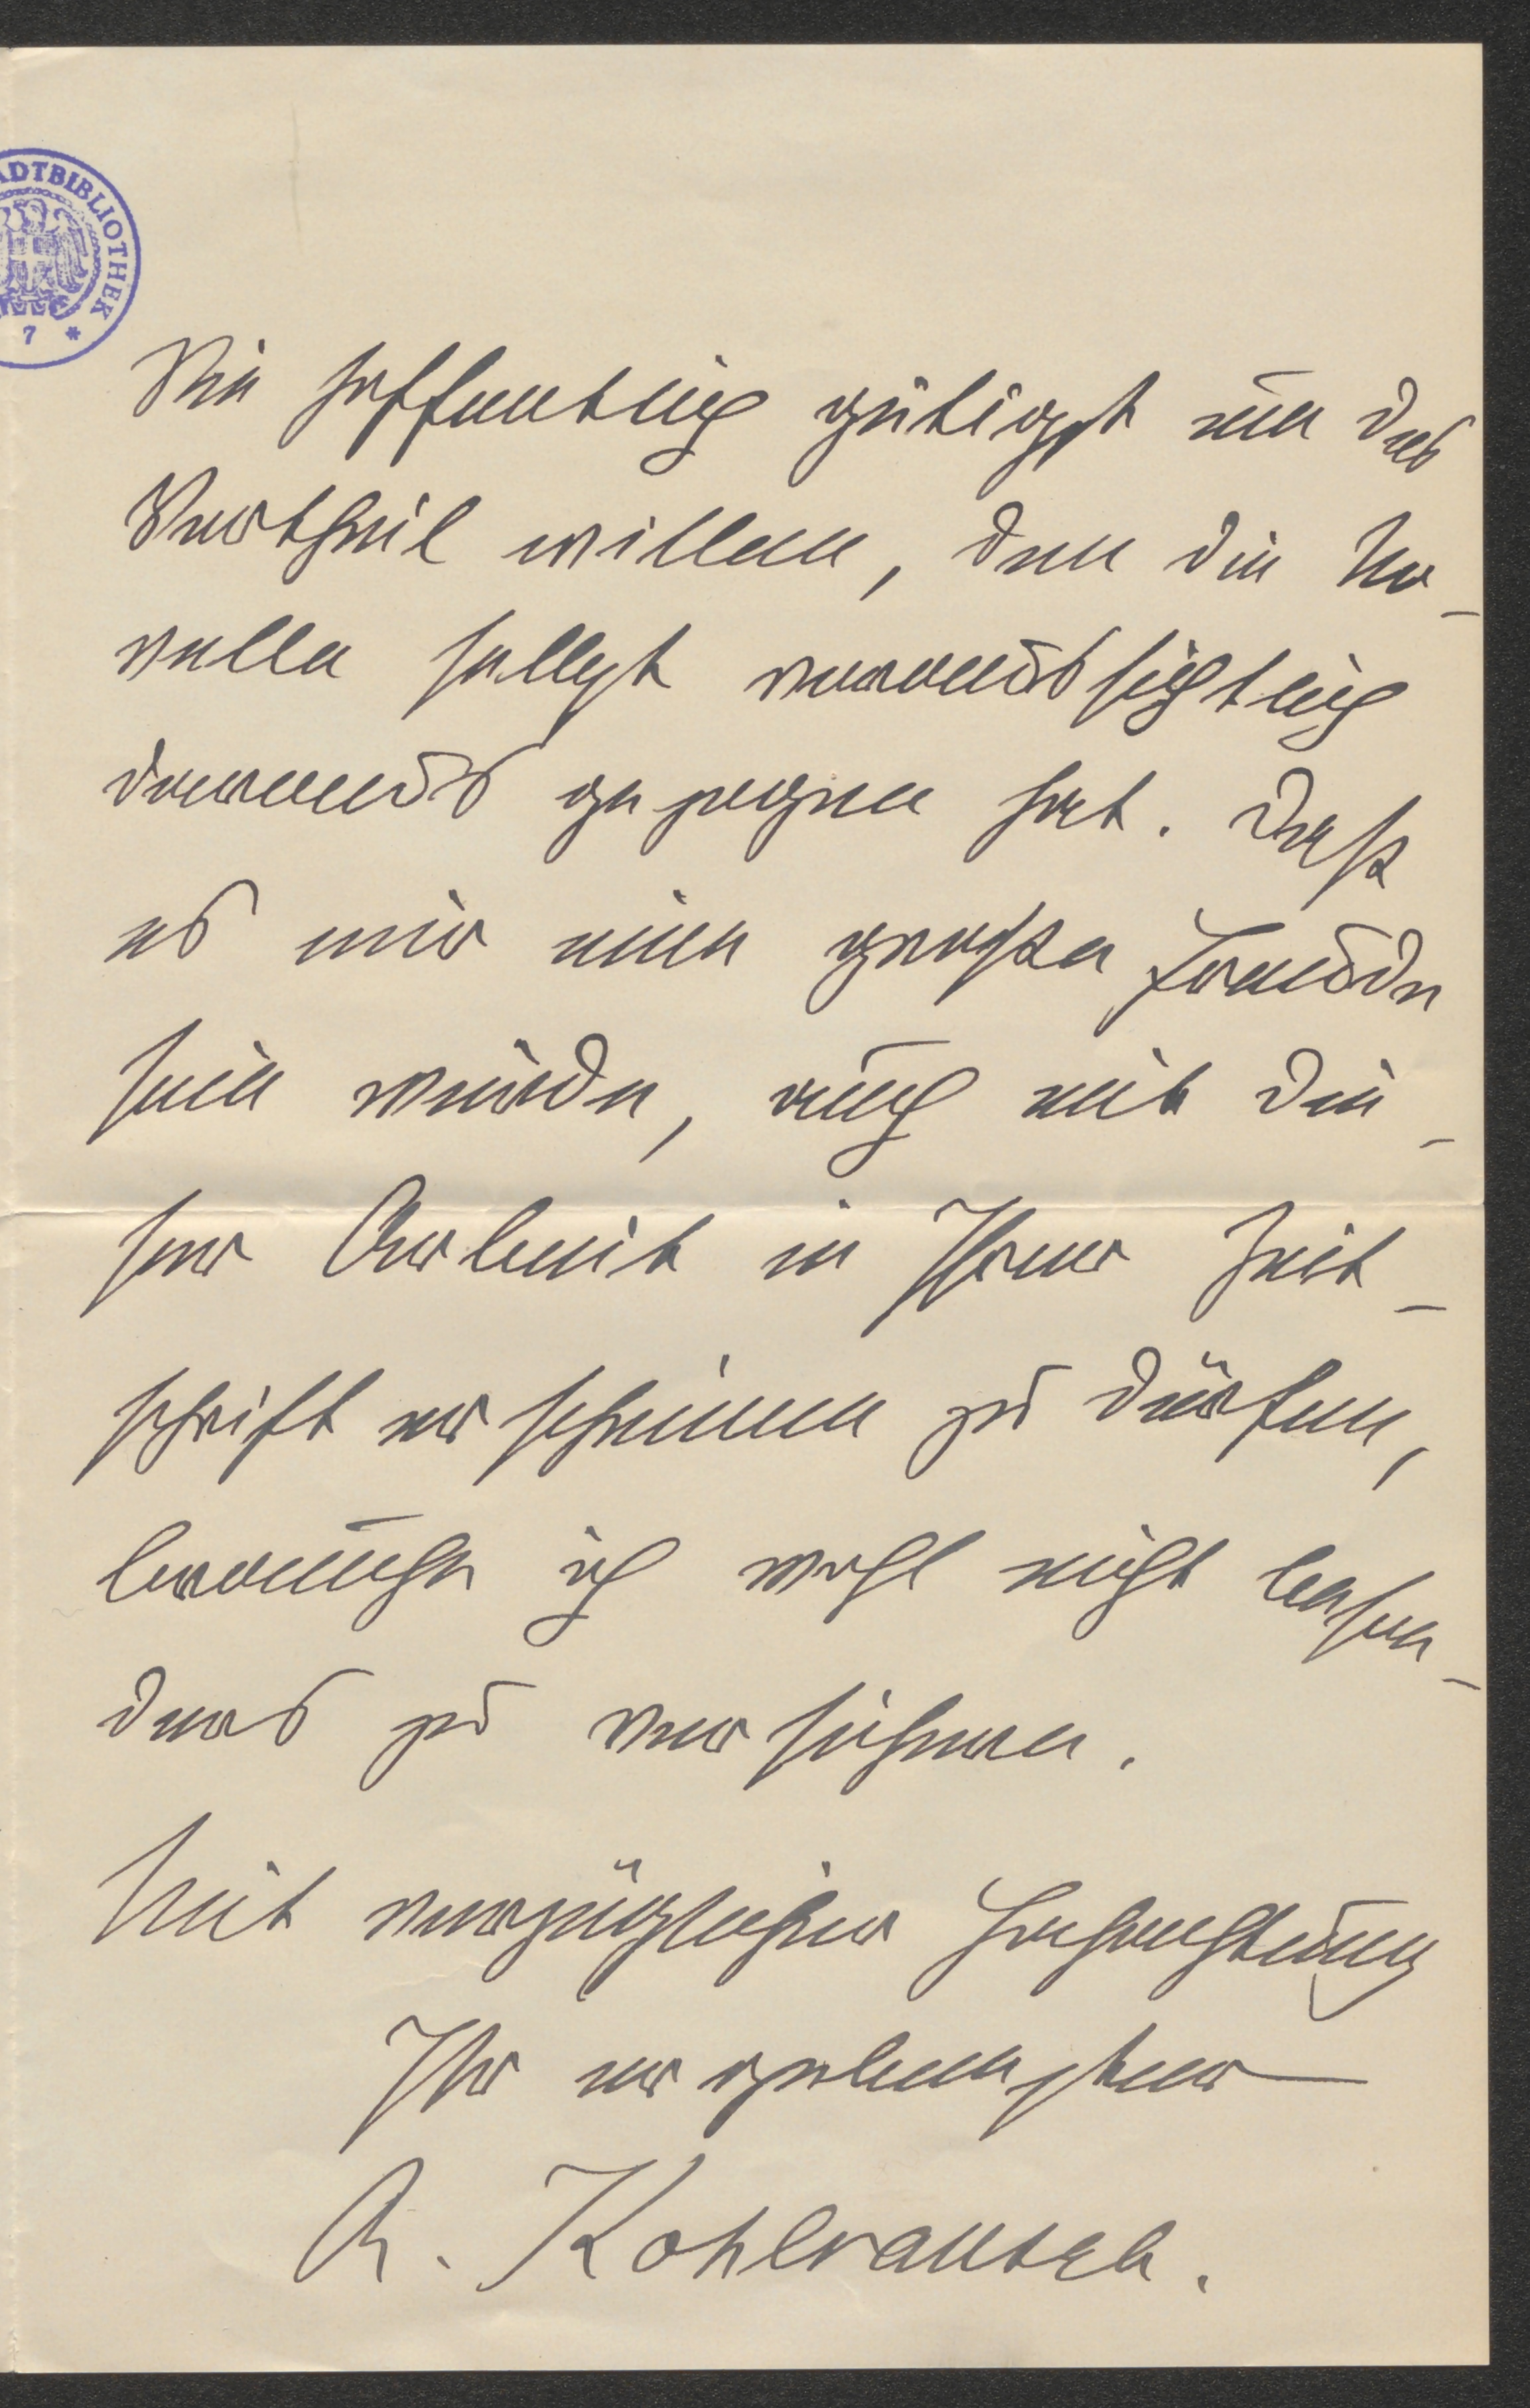 ADTBIBLIOTHEK
7 *
Sie hoffentlich gütigst um des
Vortheil willen, den die No-
velle selbst voraussichtlich
daraus gezogen hat. Daß
es mir eine große Freude
sein würde, auch mit die-
ser Arbeit in Ihrer Zeit-
schrift erscheinen zu dürfen,
brauche ich wohl nicht beson-
ders zu versichern.
Mit vorzüglicher Hochachtung
Ihr ergebenster
R. Kohlrausch.